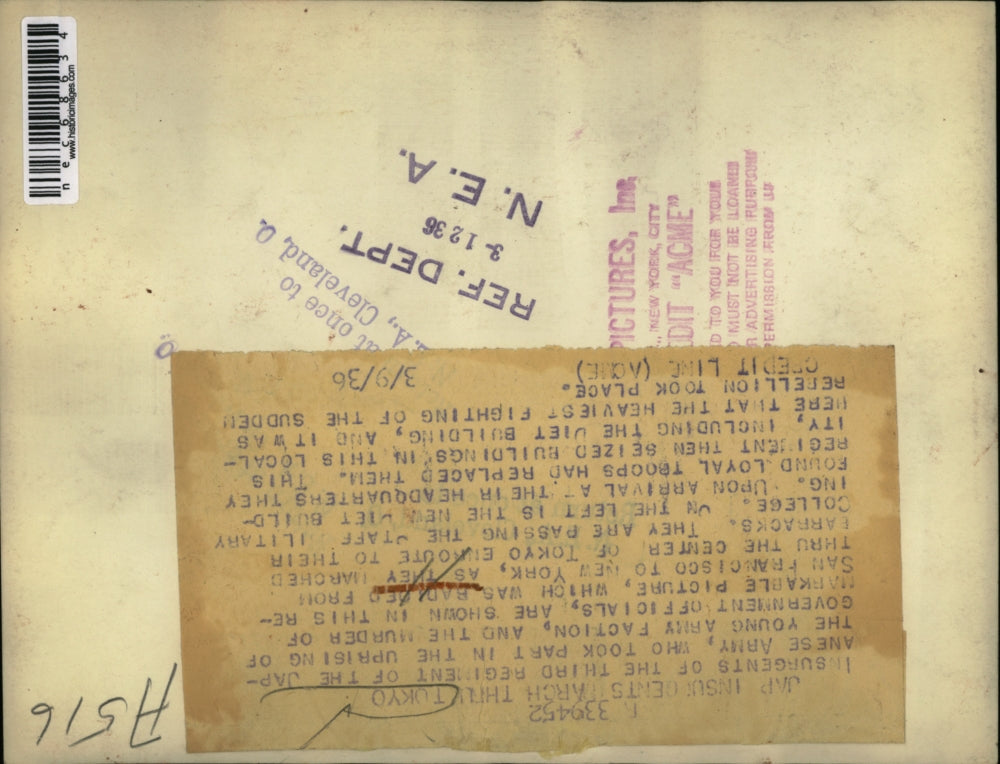 339452
JAP INSURGENTS MARCH THRU TOKYO
INSURGENTS OF THE THIRD REGIMENT OF THE JAP-
ANESE ARMY, WHO TOOK PART IN THE UPRISING OF
THE YOUNG ARMY FACTION, AND THE MURDER OF
GOVERNMENT OFFICIALS, ARE SHOWN IN THIS RE-
MARKABLE PICTURE, WHICH WAS RADIOED FROM
SAN FRANCISCO TO NEW YORK, AS THEY MARCHED
THRU THE CENTER OF TOKYO ENROUTE TO THEIR
BARRACKS. THEY ARE PASSING THE STAFF MILITARY
COLLEGE. ON THE LEFT IS THE NEW DIET BUILD-
ING. UPON ARRIVAL AT THEIR HEADQUARTERS THEY
FOUND LOYAL TROOPS HAD REPLACED THEM. THIS
REGIMENT THEN SEIZED BUILDINGS IN THIS LOCAL-
ITY, INCLUDING THE DIET BUILDING, AND IT WAS
HERE THAT THE HEAVIEST FIGHTING OF THE SUDDEN
REBELLION TOOK PLACE.
CREDIT LINE (ACME) 3/9/36
REF. DEPT.
3-12 36
N. E. A.
at once to
A., Cleveland, O.
O.
PICTURES, Inc.
NEW YORK, CITY
DIT "ACME"
D TO YOU FOR YOUR
MUST NOT BE LOANED
R ADVERTISING PURPOSES
PERMISSION FROM US
nec68634
www.historicimages.com
A516